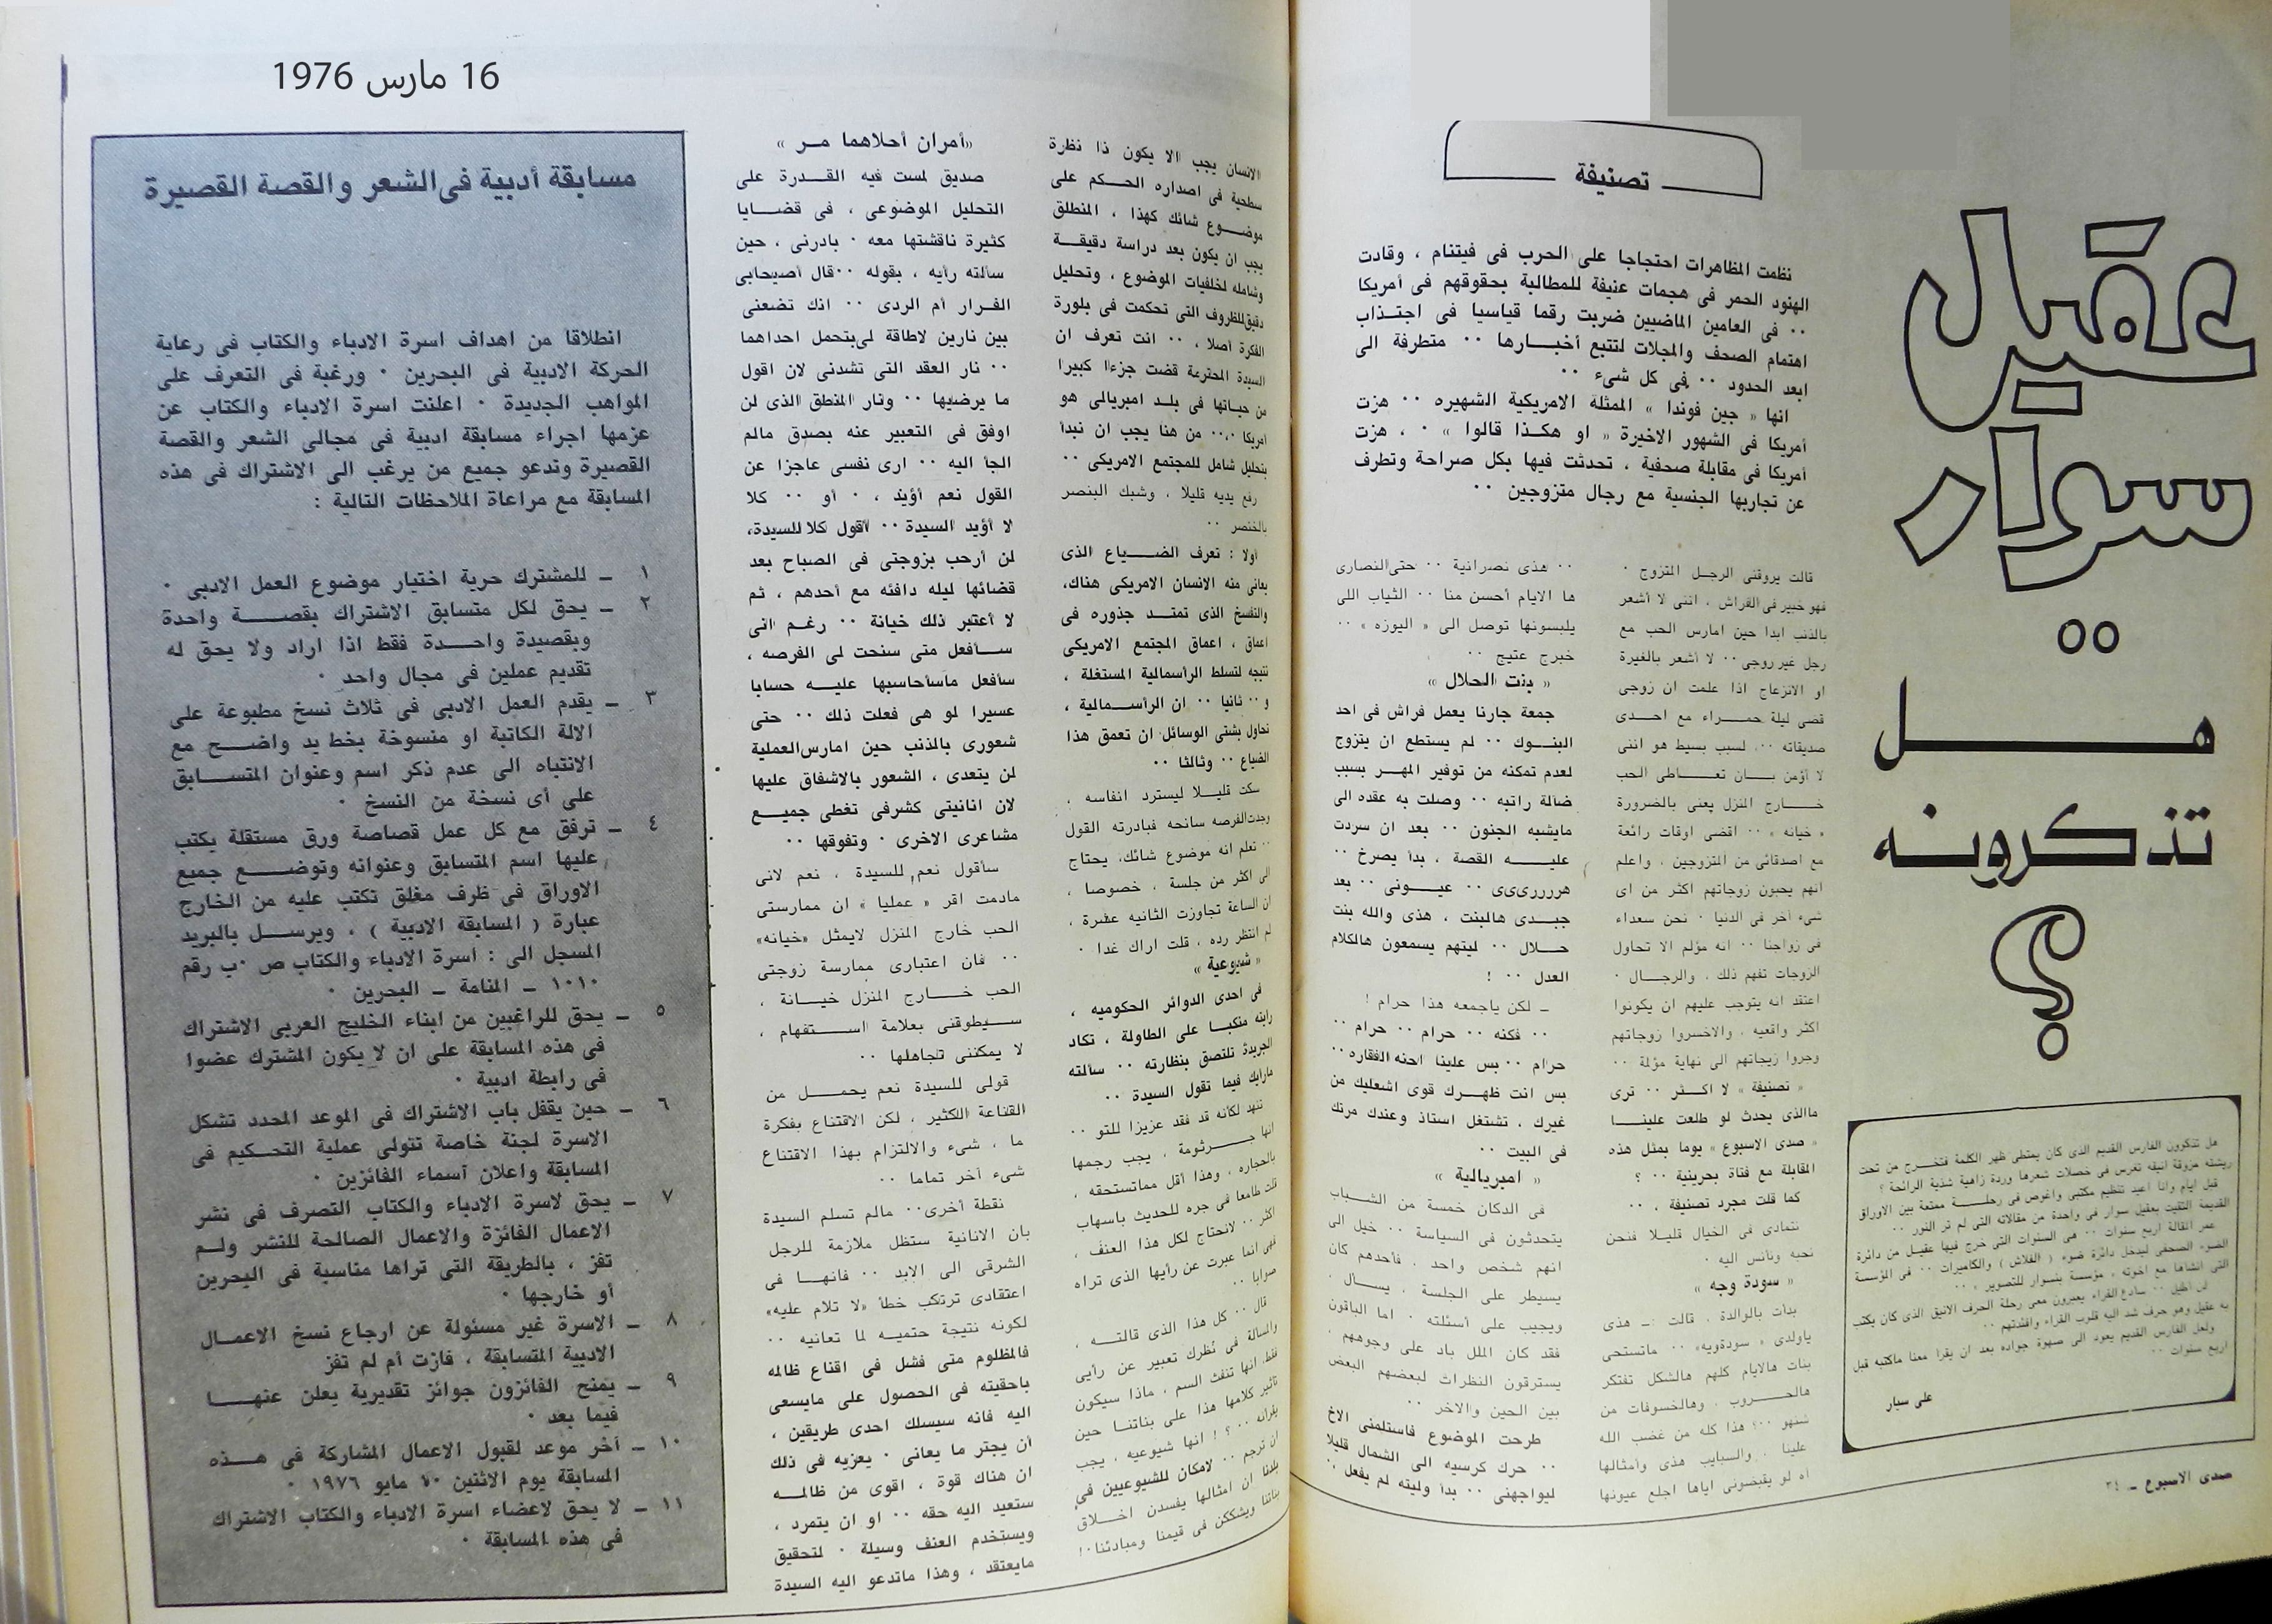 16 مارس 1976
عقيل
سوار
هل
تذكرونه
؟
هل تذكرون الفارس القديم الذى كان يمتطى ظهر الكلمة فتخرج من تحت
ريشته مزوقة انيقه تغرس فى خصلات شعرها وردة زاهية شذية الرائحة ؟
قبل ايام وانا أعيد تنظيم مكتبى واغوص فى رحلة ممتعة بين الاوراق
القديمة التقيت بعقيل سوار فى واحدة من مقالاته التى لم تر النور ٠٠
عمر المقالة اربع سنوات ٠٠ هى السنوات التى خرج فيها عقيل من دائرة
الضوء الصحفى ليدخل دائرة ضوء ( الفلاش ) والكاميرات ٠٠ فى المؤسسة
التى انشاها مع اخوته ، مؤسسة بنسوار للتصوير ٠٠
لن اطيل ٠٠ سادع القراء يعبرون معى رحلة الحرف الانيق الذى كان يكتب
به عقيل وهو حرف شد اليه قلوب القراء وافئدتهم ٠٠
ولعل الفارس القديم يعود الى صهوة جواده بعد ان يقرا معنا ماكتبه قبل
اربع سنوات ٠٠
على سيار
صدى الاسبوع ـ ٣٤
تصنيفة
نظمت المظاهرات احتجاجا على الحرب فى فيتنام ، وقادت
الهنود الحمر فى هجمات عنيفة للمطالبة بحقوقهم فى أمريكا
٠٠ فى العامين الماضيين ضربت رقما قياسيا فى اجتذاب
اهتمام الصحف والمجلات لتتبع أخبارها ٠٠ متطرفة الى
ابعد الحدود ٠٠ فى كل شىء ٠٠
انها « جين فوندا » الممثلة الامريكية الشهيره ٠٠ هزت
أمريكا فى الشهور الاخيرة « او هكذا قالوا » ٠ ، هزت
أمريكا فى مقابلة صحفية ، تحدثت فيها بكل صراحة وتطرف
عن تجاربها الجنسية مع رجال متزوجين ٠٠
قالت يروقنى الرجل المتزوج ٠
فهو خبير فى الفراش ، اننى لا أشعر
بالذنب ابدا حين امارس الحب مع
رجل غير زوجى ٠٠ لا أشعر بالغيرة
او الانزعاج اذا علمت ان زوجى
قضى ليلة حمراء مع احدى
صديقاته ٠٠ لسبب بسيط هو اننى
لا أؤمن بان تعاطى الحب
خارج المنزل يعنى بالضرورة
« خيانه » ٠٠ اقضى اوقات رائعة
مع اصدقائى من المتزوجين ، واعلم
انهم يحبون زوجاتهم اكثر من اى
شىء آخر فى الدنيا ٠ نحن سعداء
فى زواجنا ٠٠ انه مؤلم الا تحاول
الزوجات تفهم ذلك ، والرجال ٠
اعتقد انه يتوجب عليهم ان يكونوا
اكثر واقعيه ، والاخسروا زوجاتهم
وجروا زيجاتهم الى نهاية مؤلة ٠٠
« تصنيفة » لا اكثر ٠٠ ترى
ماالذى يحدث لو طلعت علينا
« صدى الاسبوع » يوما بمثل هذه
المقابلة مع فتاة بحرينية ٠٠ ؟
كما قلت مجرد تصنيفة ، ٠٠
نتمادى فى الخيال قليلا فنحن
نحبه ونأنس اليه ٠
« سودة وجه »
بدأت بالوالدة ، قالت :ـ هذى
ياولدى « سودةويه» ٠٠ ماتستحى
بنات هالايام كلهم هالشكل تفتكر
هالحروب ، وهالخسوفات من
شنهو ٠٠؟ هذا كله من غضب الله
علينا ، والسبايب هذى وأمثالها
آه لو يقبضونى اياها اجلع عيونها
٠٠ هذى نصرانية ٠٠ حتى النصارى
ها الايام أحسن منا ٠٠ الثياب اللى
يلبسونها توصل الى « اليوزه » ٠٠
خبرج عتيج ٠٠
« بنت الحلال »
جمعة جارنا يعمل فراش فى احد
البنوك ٠٠ لم يستطع ان يتزوج
لعدم تمكنه من توفير المهر بسبب
ضآلة راتبه ٠٠ وصلت به عقده الى
مايشبه الجنون ٠٠ بعد ان سردت
عليه القصة ، بدأ يصرخ ٠٠
هررررىىىى ٠٠ عيونى ٠٠ بعد
جبدى هالبنت ، هذى والله بنت
حلال ٠٠ ليتهم يسمعون هالكلام
العدل ٠٠ !
ـ لكن ياجمعه هذا حرام !
٠٠ فكنه ٠٠ حرام ٠٠ حرام ٠٠
حرام ٠٠ بس علينا احنه الفقاره ٠٠
بس انت ظهرك قوى اشعليك من
غيرك ، تشتغل استاذ وعندك مرتك
فى البيت ٠٠
« امبريالية »
فى الدكان خمسة من الشباب
يتحدثون فى السياسة ٠٠ خيل الى
انهم شخص واحد ، فأحدهم كان
يسيطر على الجلسة ، يسأل ٠
ويجيب على أسئلته ٠ اما الباقون
فقد كان الملل باد على وجوههم ٠
يسترقون النظرات لبعضهم البعض
بين الحين والآخر ٠٠
طرحت الموضوع فاستلمنى الاخ
٠٠ حرك كرسيه الى الشمال قليلا
ليواجهنى ٠٠ بدأ وليته لم يفعل ٠٠
الانسان يجب الا يكون ذا نظرة
سطحية فى اصداره الحكم على
موضوع شائك كهذا ، المنطلق
يجب ان يكون بعد دراسة دقيقة
وشامله لخلفيات الموضوع ، وتحليل
دقيق للظروف التى تحكمت فى بلورة
الفكرة أصلا ، ٠٠ انت تعرف ان
السيدة المحترمة قضت جزءا كبيرا
من حياتها فى بلد امبريالى هو
امريكا ٠٠٠ من هنا يجب ان نبدأ
بتحليل شامل للمجتمع الامريكى ٠٠
رفع يديه قليلا ، وشبك البنصر
بالخنصر ٠٠
أولا : تعرف الضياع الذى
يعانى منه الانسان الامريكى هناك،
والتفسخ الذى تمتد جذوره فى
اعماق ، اعماق المجتمع الامريكى
نتيجه لتسلط الرأسمالية المستغلة ،
و ٠٠ ثانيا ٠٠ ان الرأسمالية ،
تحاول بشتى الوسائل ان تعمق هذا
الضياع ٠٠ وثالثا ٠٠
سكت قليلا ليسترد انفاسه ،
وجدت الفرصه سانحه فبادرته القول
٠٠ تعلم انه موضوع شائك، يحتاج
الى اكثر من جلسة ، خصوصا ،
ان الساعة تجاوزت الثانيه عشرة ،
لم انتظر رده ، قلت اراك غدا ٠
« شيوعية »
فى احدى الدوائر الحكوميه ،
رايته منكبا على الطاولة ، تكاد
الجريدة تلتصق بنظارته ٠٠ سألته
مارايك فيما تقول السيدة ٠٠
تنهد لكأنه قد فقد عزيزا للتو ٠٠
انها جرثومة ، يجب رجمها
بالحجاره ، وهذا أقل مماتستحقه ،
قلت طامعا فى جره للحديث باسهاب
اكثر ٠٠ لانحتاج لكل هذا العنف ،
فهى انما عبرت عن رأيها الذى تراه
صوابا ٠٠
قال ٠٠ كل هذا الذى قالته ،
والمسألة فى نظرك تعبير عن رأيى
فقط، انها تنفث السم ، ماذا سيكون
تاثير كلامها هذا على بناتنا حين
يقرأنه ٠٠ ؟ ! انها شيوعيه ، يجب
ان ترجم ٠٠ لامكان للشيوعيين فى
بلدنا ان امثالها يفسدن اخلاق
بناتنا ويشككن فى قيمنا ومبادئنا٠!
«أمران أحلاهما مر »
صديق لمست فيه القدرة على
التحليل الموضوعى ، فى قضايا
كثيرة ناقشتها معه ٠ بادرنى ، حين
سألته رأيه ، بقوله ٠٠قال أصيحابى
الفرار أم الردى ٠٠ انك تضعنى
بين نارين لاطاقة لى بتحمل احداهما
٠٠ نار العقد التى تشدنى لان اقول
ما يرضيها ٠٠ ونار المنطق الذى لن
اوفق فى التعبير عنه بصدق مالم
الجأ اليه ٠٠ ارى نفسى عاجزا عن
القول نعم أؤيد ، ٠ أو ٠٠ كلا
لا أؤيد السيدة ٠٠ أقول كلا للسيدة،
لن أرحب بزوجتى فى الصباح بعد
قضائها ليله دافئه مع أحدهم ، ثم
لا أعتبر ذلك خيانة ٠٠ رغم انى
سأفعل متى سنحت لى الفرصه ،
سأفعل ماسأحاسبها عليه حسابا
عسيرا لو هى فعلت ذلك ٠٠ حتى
شعورى بالذنب حين امارس العملية
لن يتعدى ، الشعور بالاشفاق عليها
لان انانيتى كشرقى تغطى جميع
مشاعرى الاخرى ٠ وتفوقها ٠٠
سأقول نعم للسيدة ، نعم لانى
مادمت اقر « عمليا » ان ممارستى
الحب خارج المنزل لايمثل «خيانه»
٠٠ فان اعتبارى ممارسة زوجتى
الحب خارج المنزل خيانة ،
سيطوقنى بعلامة استفهام ،
لا يمكننى تجاهلها ٠٠
قولى للسيدة نعم يحمل من
القناعة الكثير ، لكن الاقتناع بفكرة
ما ، شىء والالتزام بهذا الاقتناع
شىء آخر تماما ٠٠
نقطة أخرى٠٠ مالم تسلم السيدة
بان الانانية ستظل ملازمة للرجل
الشرقى الى الابد ٠٠ فانها فى
اعتقادى ترتكب خطأ «لا تلام عليه»
لكونه نتيجة حتميه لما تعانيه ٠٠
فالمظلوم متى فشل فى اقناع ظالمه
باحقيته فى الحصول على مايسعى
اليه فانه سيسلك احدى طريقين ،
أن يجتر ما يعانى ٠ يعزيه فى ذلك
ان هناك قوة ، اقوى من ظالمه
ستعيد اليه حقه ٠٠ او ان يتمرد ،
ويستخدم العنف وسيلة ٠ لتحقيق
مايعتقد ، وهذا ماتدعو اليه السيدة
مسابقة أدبية فى الشعر والقصة القصيرة
انطلاقا من اهداف اسرة الادباء والكتاب فى رعاية
الحركة الادبية فى البحرين ٠ ورغبة فى التعرف على
المواهب الجديدة ٠ اعلنت اسرة الادباء والكتاب عن
عزمها اجراء مسابقة ادبية فى مجالى الشعر والقصة
القصيرة وتدعو جميع من يرغب الى الاشتراك فى هذه
المسابقة مع مراعاة الملاحظات التالية :
١ ـ للمشترك حرية اختيار موضوع العمل الادبى ٠
٢ ـ يحق لكل متسابق الاشتراك بقصة واحدة
وبقصيدة واحدة فقط اذا اراد ولا يحق له
تقديم عملين فى مجال واحد ٠
٣ ـ يقدم العمل الادبى فى ثلاث نسخ مطبوعة على
الالة الكاتبة او منسوخة بخط يد واضح مع
الانتباه الى عدم ذكر اسم وعنوان المتسابق
على أى نسخة من النسخ ٠
٤ ـ ترفق مع كل عمل قصاصة ورق مستقلة يكتب
عليها اسم المتسابق وعنوانه وتوضع جميع
الاوراق فى ظرف مغلق تكتب عليه من الخارج
عبارة ( المسابقة الادبية ) ، ويرسل بالبريد
المسجل الى : اسرة الادباء والكتاب ص ٠ب رقم
١٠١٠ ـ المنامة ـ البحرين ٠
٥ ـ يحق للراغبين من ابناء الخليج العربى الاشتراك
فى هذه المسابقة على ان لا يكون المشترك عضوا
فى رابطة ادبية ٠
٦ ـ حين يقفل باب الاشتراك فى الموعد المحدد تشكل
الاسرة لجنة خاصة تتولى عملية التحكيم فى
المسابقة واعلان أسماء الفائزين ٠
٧ ـ يحق لاسرة الادباء والكتاب التصرف فى نشر
الاعمال الفائزة والاعمال الصالحة للنشر ولم
تفز ، بالطريقة التى تراها مناسبة فى البحرين
أو خارجها ٠
٨ ـ الاسرة غير مسئولة عن ارجاع نسخ الاعمال
الادبية المتسابقة ، فازت أم لم تفز
٩ ـ يمنح الفائزون جوائز تقديرية يعلن عنها
فيما بعد ٠
١٠ ـ آخر موعد لقبول الاعمال المشاركة فى هذه
المسابقة يوم الاثنين ١٠ مايو ١٩٧٦ ٠
١١ ـ لا يحق لاعضاء اسرة الادباء والكتاب الاشتراك
فى هذه المسابقة ٠